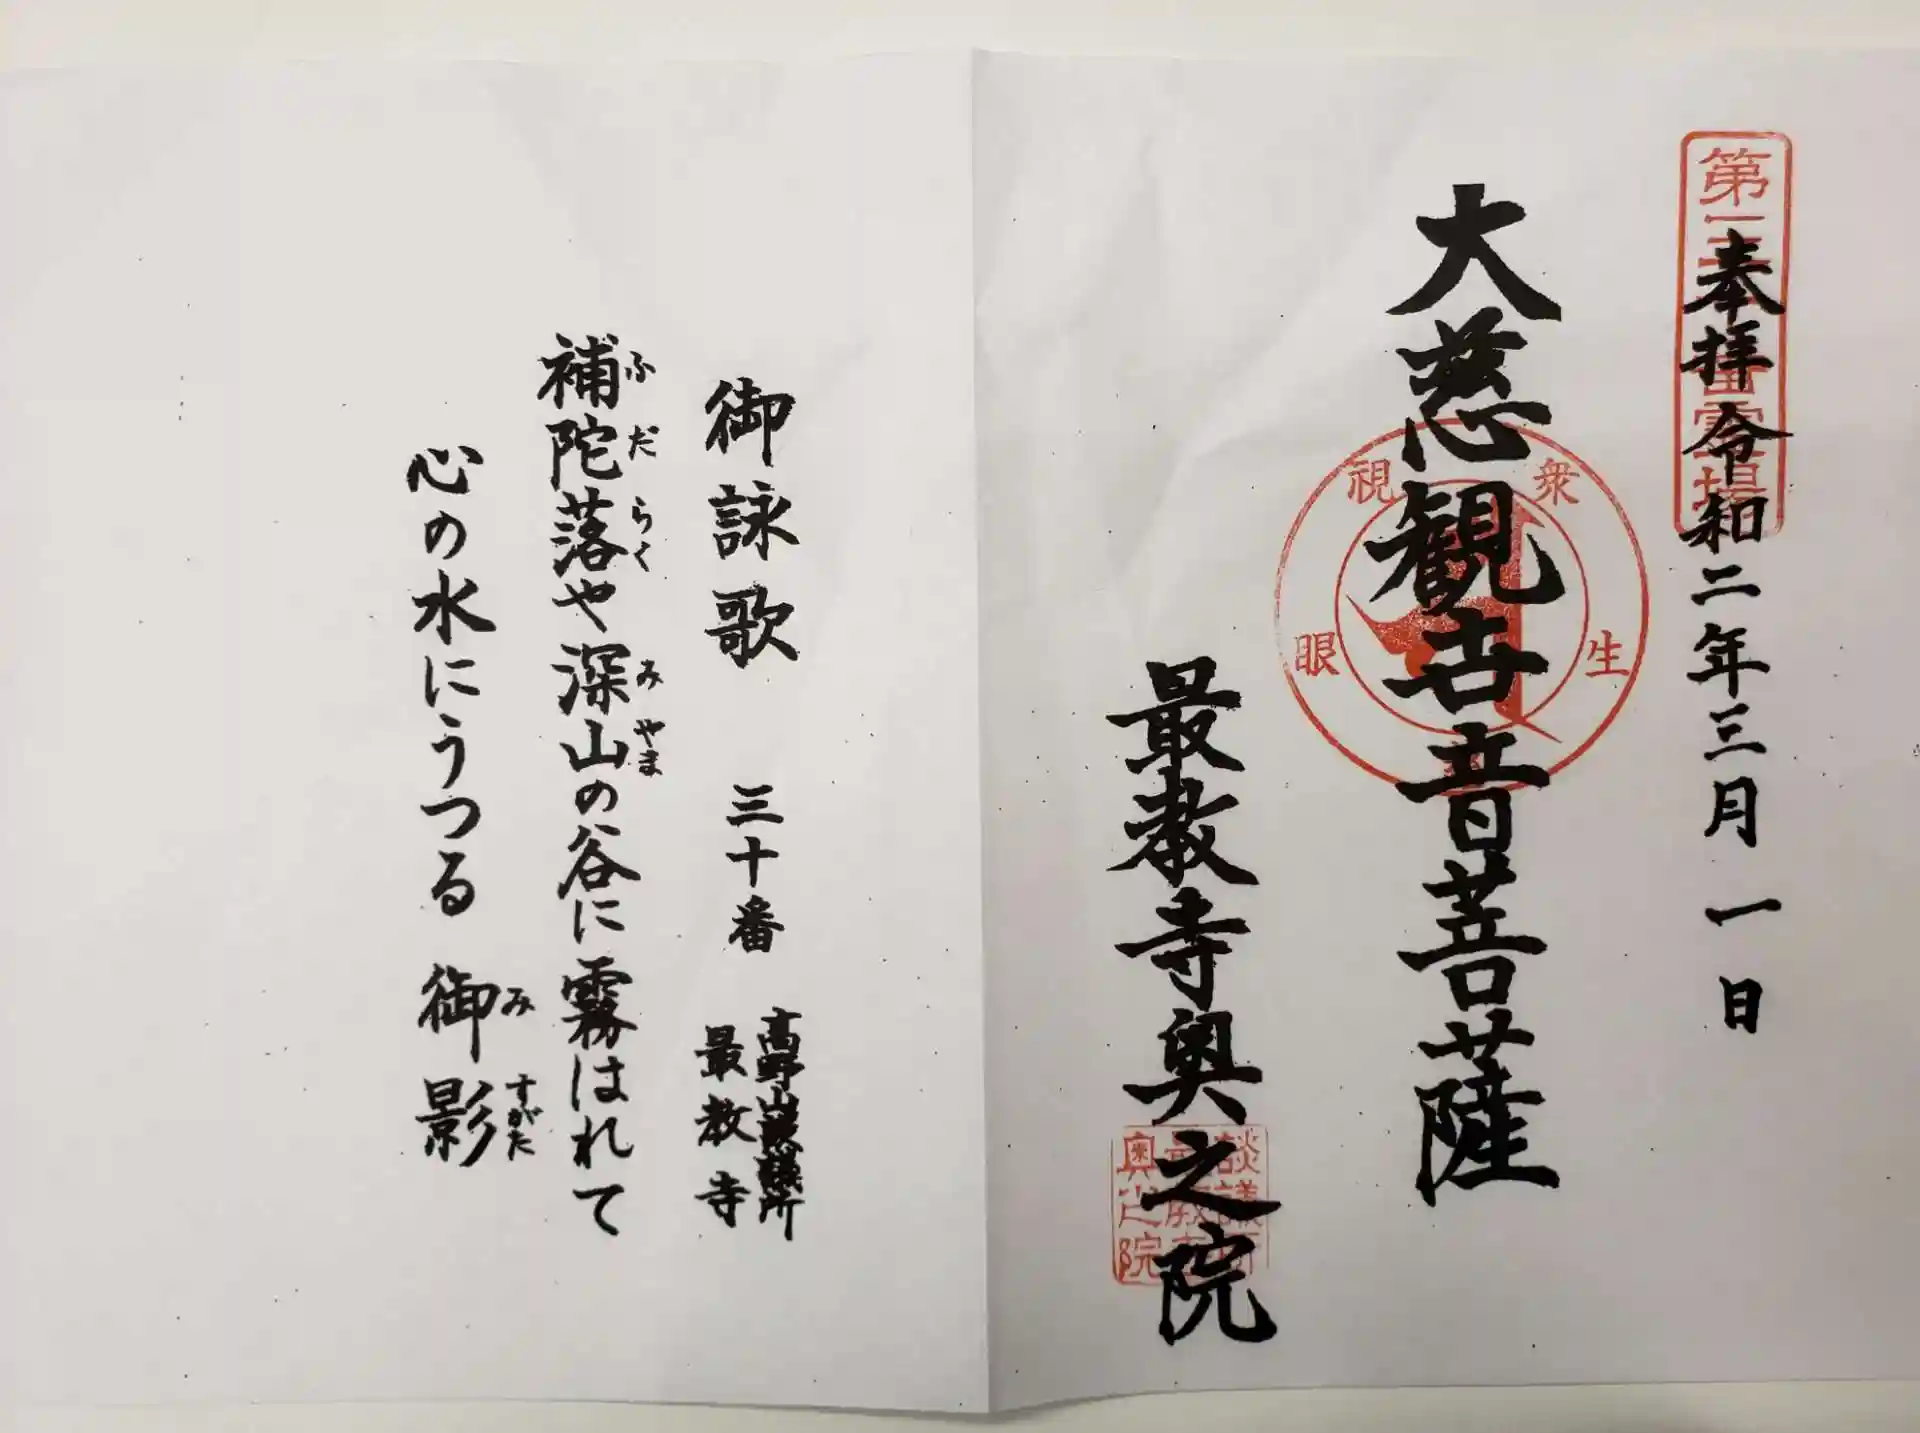 奉拝 令和二年三月一日
大慈観世音菩薩
慈眼視衆生
最教寺奥之院
御詠歌 三十番 高野山談議所 最教寺
補陀落や深山の谷に霧はれて
ふだらく みやま
心の水にうつる 御影
み すがた